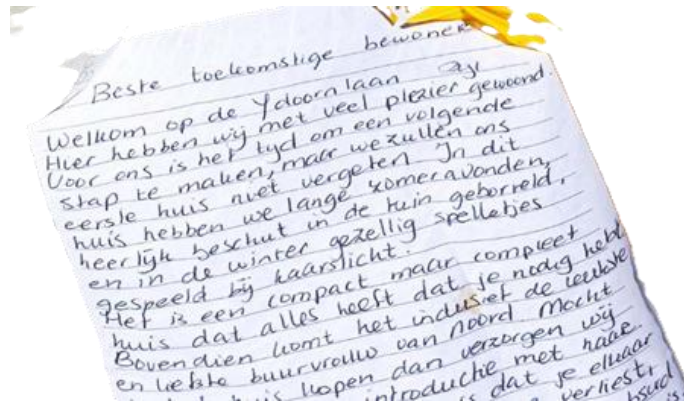 Beste toekomstige bewoner
Welkom op de Ydoornlaan
Hier hebben wij met veel plezier gewoond.
Voor ons is het tyd om een volgende
stap te maken, maar we zullen ons
eerste huis niet vergeten In dit
huis hebben we lange zomeravonden,
heerlijk beschut in de tuin geborreld,
en in de winter gezellig spelletjes
gespeeld bij kaarslicht.
Het is een compact maar compleet
huis dat alles heeft dat je nodig hebt
Bovendien komt het inclusief de leukste
en liefste buurvrouw van Noord Mocht
huis kopen dan verzorgen wij
introductie met haar.
is dat je elkaar
verliest,